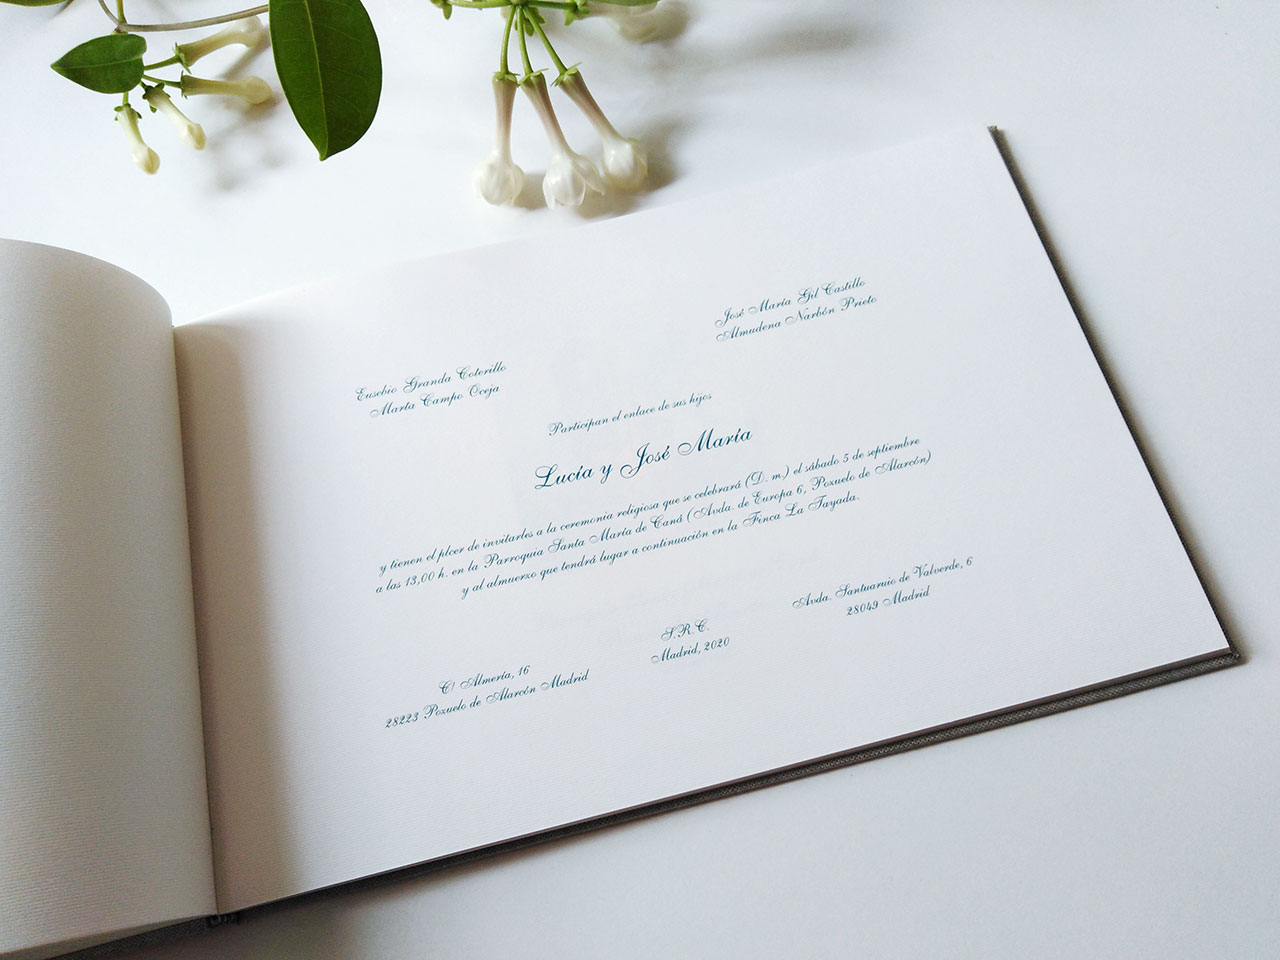 Eusebio Granda Coterillo
Marta Campo Oceja
José María Gil Castillo
Almudena Narbón Prieto
Participan el enlace de sus hijos
Lucía y José María
y tienen el plcer de invitarles a la ceremonia religiosa que se celebrará (D. m.) el sábado 5 de septiembre
a las 13,00 h. en la Parroquia Santa María de Caná (Avda. de Europa 6, Pozuelo de Alarcón)
y al almuerzo que tendrá lugar a continuación en la Finca La Tayada.
C/ Almería, 16
28223 Pozuelo de Alarcón Madrid
S.R.C.
Madrid, 2020
Avda. Santuaruio de Valverde, 6
28049 Madrid